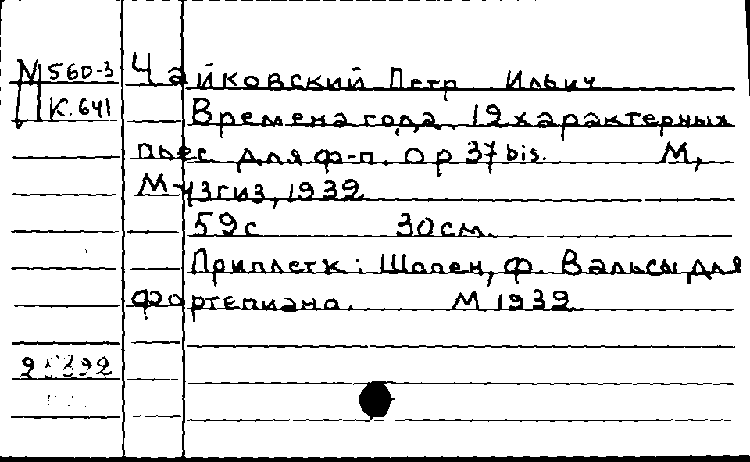 М 560-3 Чайковский Петр Ильич
К.641 Времена года. 12 характерных
пьес для ф-п. Op 37 bis. М,
Музгиз, 1939
59 с 30 см.
Приплетк: Шопен, ф. Вальсы для
фортепиано. М 1939